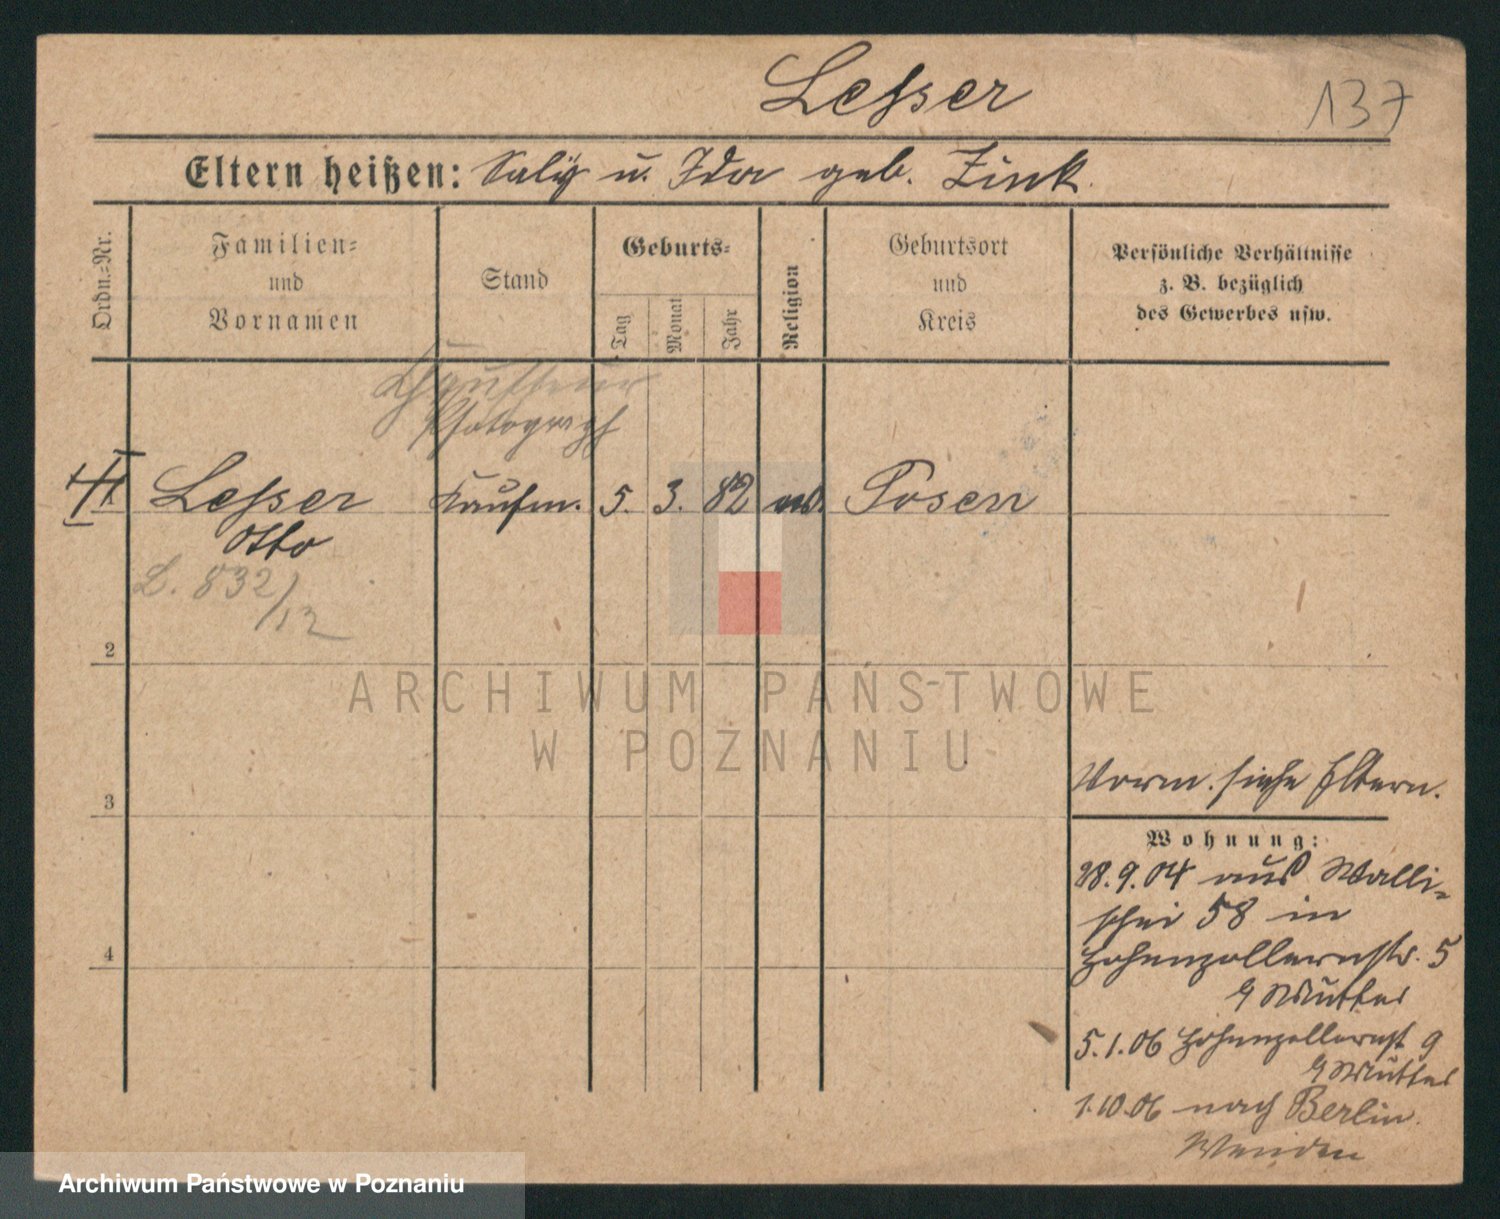 Lesser
137
Eltern heißen: Saly u. Ida geb. Zink.
Ordn.-Nr.
Familien-
und
Vornamen
Stand
Geburts-
Tag
Monat
Jahr
Religion
Geburtsort
und
Kreis
Persönliche Verhältnisse
z. B. bezüglich
des Gewerbes usw.
Photograph
Lesser Kaufm. 5. 3. 82 Posen
Otto
L. 832/12
2
ARCHIWUM PAŃSTWOWE
W POZNANIU
3
Vorm. siehe Eltern.
Wohnung:
28.9.04 aus Walli-
schei 58 in
Hohenzollernstr. 5
Mutter
4
5.1.06 Hohenzollernst 9
Mutter
1.10.06 nach Berlin.
Archiwum Państwowe w Poznaniu